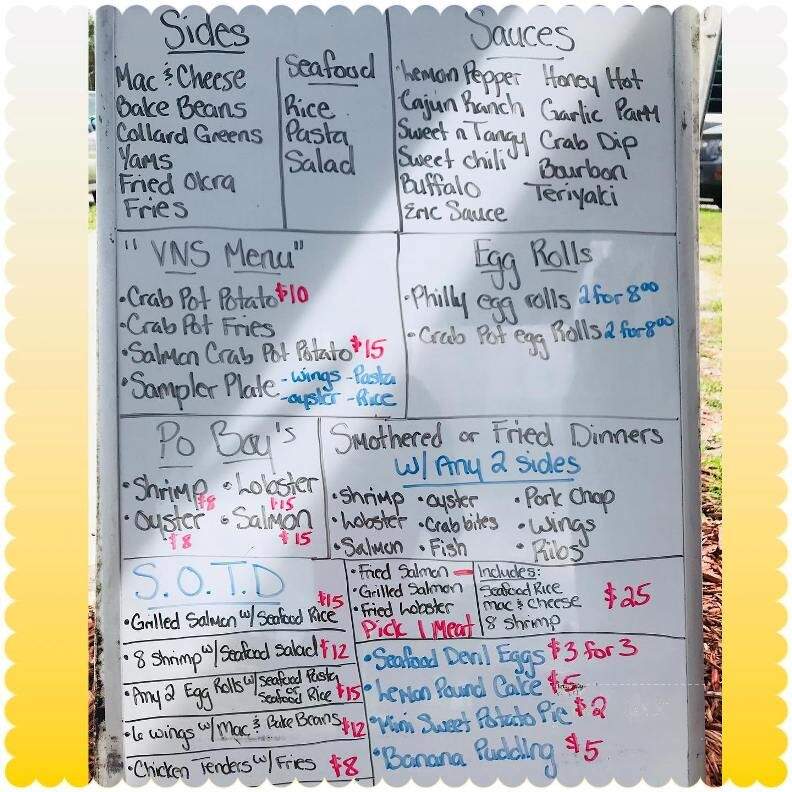 Sides
Mac & Cheese
Bake Beans
Collard Greens
Yams
Fried Okra
Fries
Seafood
Rice
Pasta
Salad
Sauces
Lemon Pepper
Cajun Ranch
Sweet n Tangy
Sweet chili
Buffalo
Eric Sauce
Honey Hot
Garlic Parm
Crab Dip
Bourbon
Teriyaki
"VNS Menu"
• Crab Pot Potato $10
• Crab Pot Fries
• Salmon Crab Pot Potato $15
• Sampler Plate - wings - Pasta
- oyster - Rice
Egg Rolls
• Philly egg rolls 2 for 8.00
• Crab Pot egg Rolls 2 for 8.00
Po Boy's
• Shrimp $8 • Lobster $15
• Oyster $8 • Salmon $15
Smothered or Fried Dinners
w/ Any 2 sides
• Shrimp • oyster • Pork Chop
• Lobster • Crab bites • Wings
• Salmon • Fish • Ribs
S.O.T.D
• Grilled Salmon w/ Seafood Rice $15
• 8 Shrimp w/ Seafood Salad $12
• Any 2 Egg Rolls w/ Seafood Pasta or Seafood Rice $15
• 6 wings w/ Mac & Bake Beans $12
• Chicken Tenders w/ Fries $8
• Fried Salmon
• Grilled Salmon
• Fried Lobster
Pick 1 Meat
Includes:
Seafood Rice
mac & cheese
8 shrimp
$25
• Seafood Devil Eggs $3 for 3
• Lemon Pound Cake $5
• Mini Sweet Potato Pie $2
• Banana Pudding $5